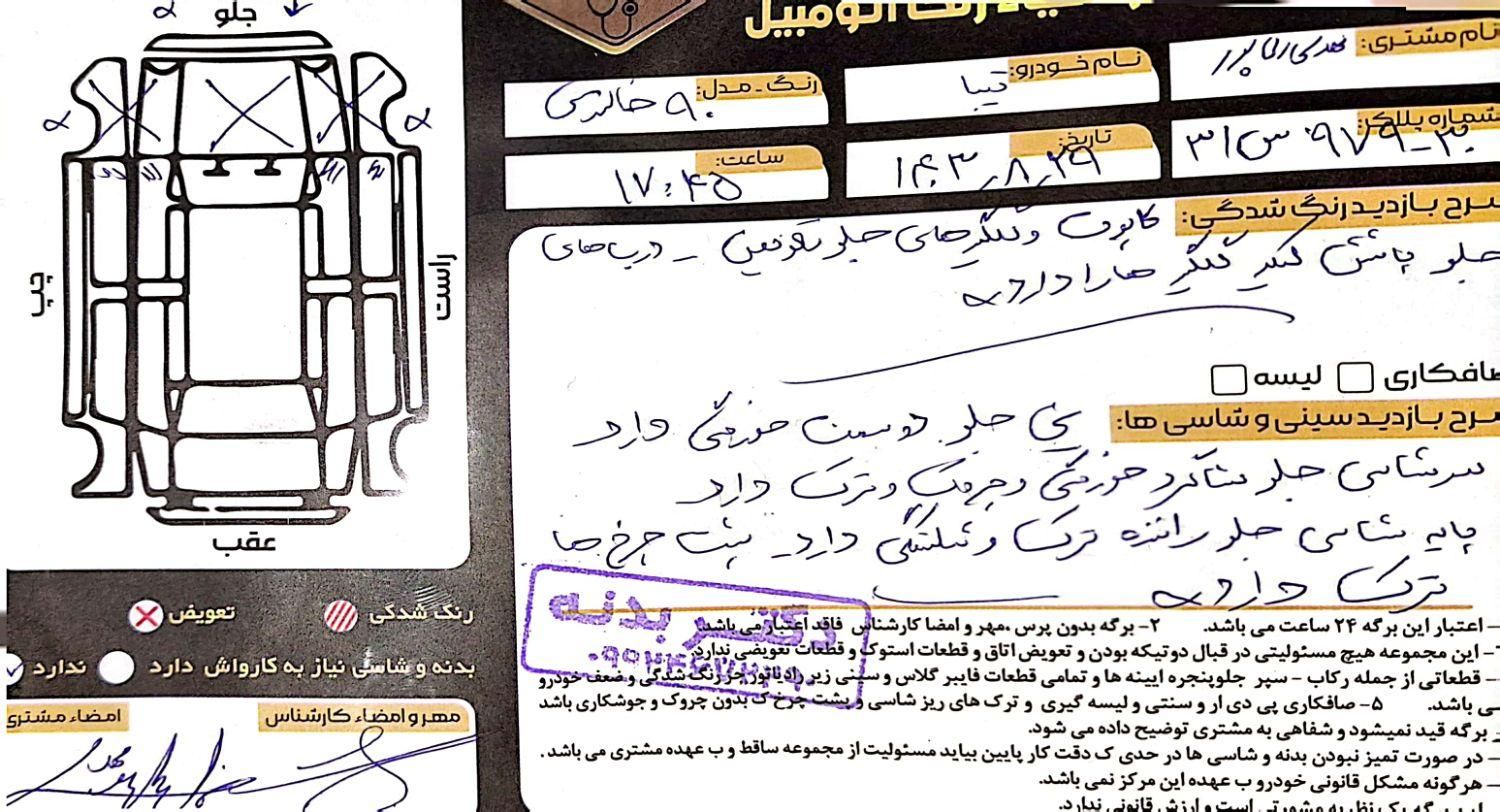 جلو
اتومبیل
نام مشتری:
نام خودرو: تیبا
رنگ - مدل: ۹۰ خاکستری
شماره پلاک:
تاریخ: ۱۴۰۳/۸/۲۹
ساعت: ۱۷:۴۵
شرح بازدید رنگ شدگی: کاپوت و گلگیرهای جلو تعویض - درب های
جلو پاشش گیر گلگیر ها را دارد
راست
چپ
صافکاری لیسه
شرح بازدید سینی و شاسی ها: سینی جلو دوسمت خوردگی دارد
سرشاسی جلو شاگرد خوردگی و چروک و ترک دارد
پایه شاسی جلو راننده ترک و شکستگی دارد - پشت چرخ ها
ترک دارد
عقب
رنگ شدگی تعویض
بدنه و شاسی نیاز به کارواش دارد ندارد
مهر و امضاء کارشناس
امضاء مشتری
دکتر بدنه
– اعتبار این برگه ۲۴ ساعت می باشد. ۲- برگه بدون پرس ،مهر و امضا کارشناس فاقد اعتبار می باشد.
– این مجموعه هیچ مسئولیتی در قبال دوتیکه بودن و تعویض اتاق و قطعات استوک و قطعات تعویضی ندارد.
– قطعاتی از جمله رکاب – سپر جلوپنجره ایینه ها و تمامی قطعات فایبر گلاس و سینی زیر رادیاتور جز رنگ شدگی و ضعف خودرو
می باشد. ۵- صافکاری پی دی ار و سنتی و لیسه گیری و ترک های ریز شاسی و پشت چرخ ک بدون چروک و جوشکاری باشد
ر برگه قید نمیشود و شفاهی به مشتری توضیح داده می شود.
– در صورت تمیز نبودن بدنه و شاسی ها در حدی ک دقت کار پایین بیاید مسئولیت از مجموعه ساقط و ب عهده مشتری می باشد.
– هرگونه مشکل قانونی خودرو ب عهده این مرکز نمی باشد.
برگه یک نظریه مشورتی است و ارزش قانونی ندارد.